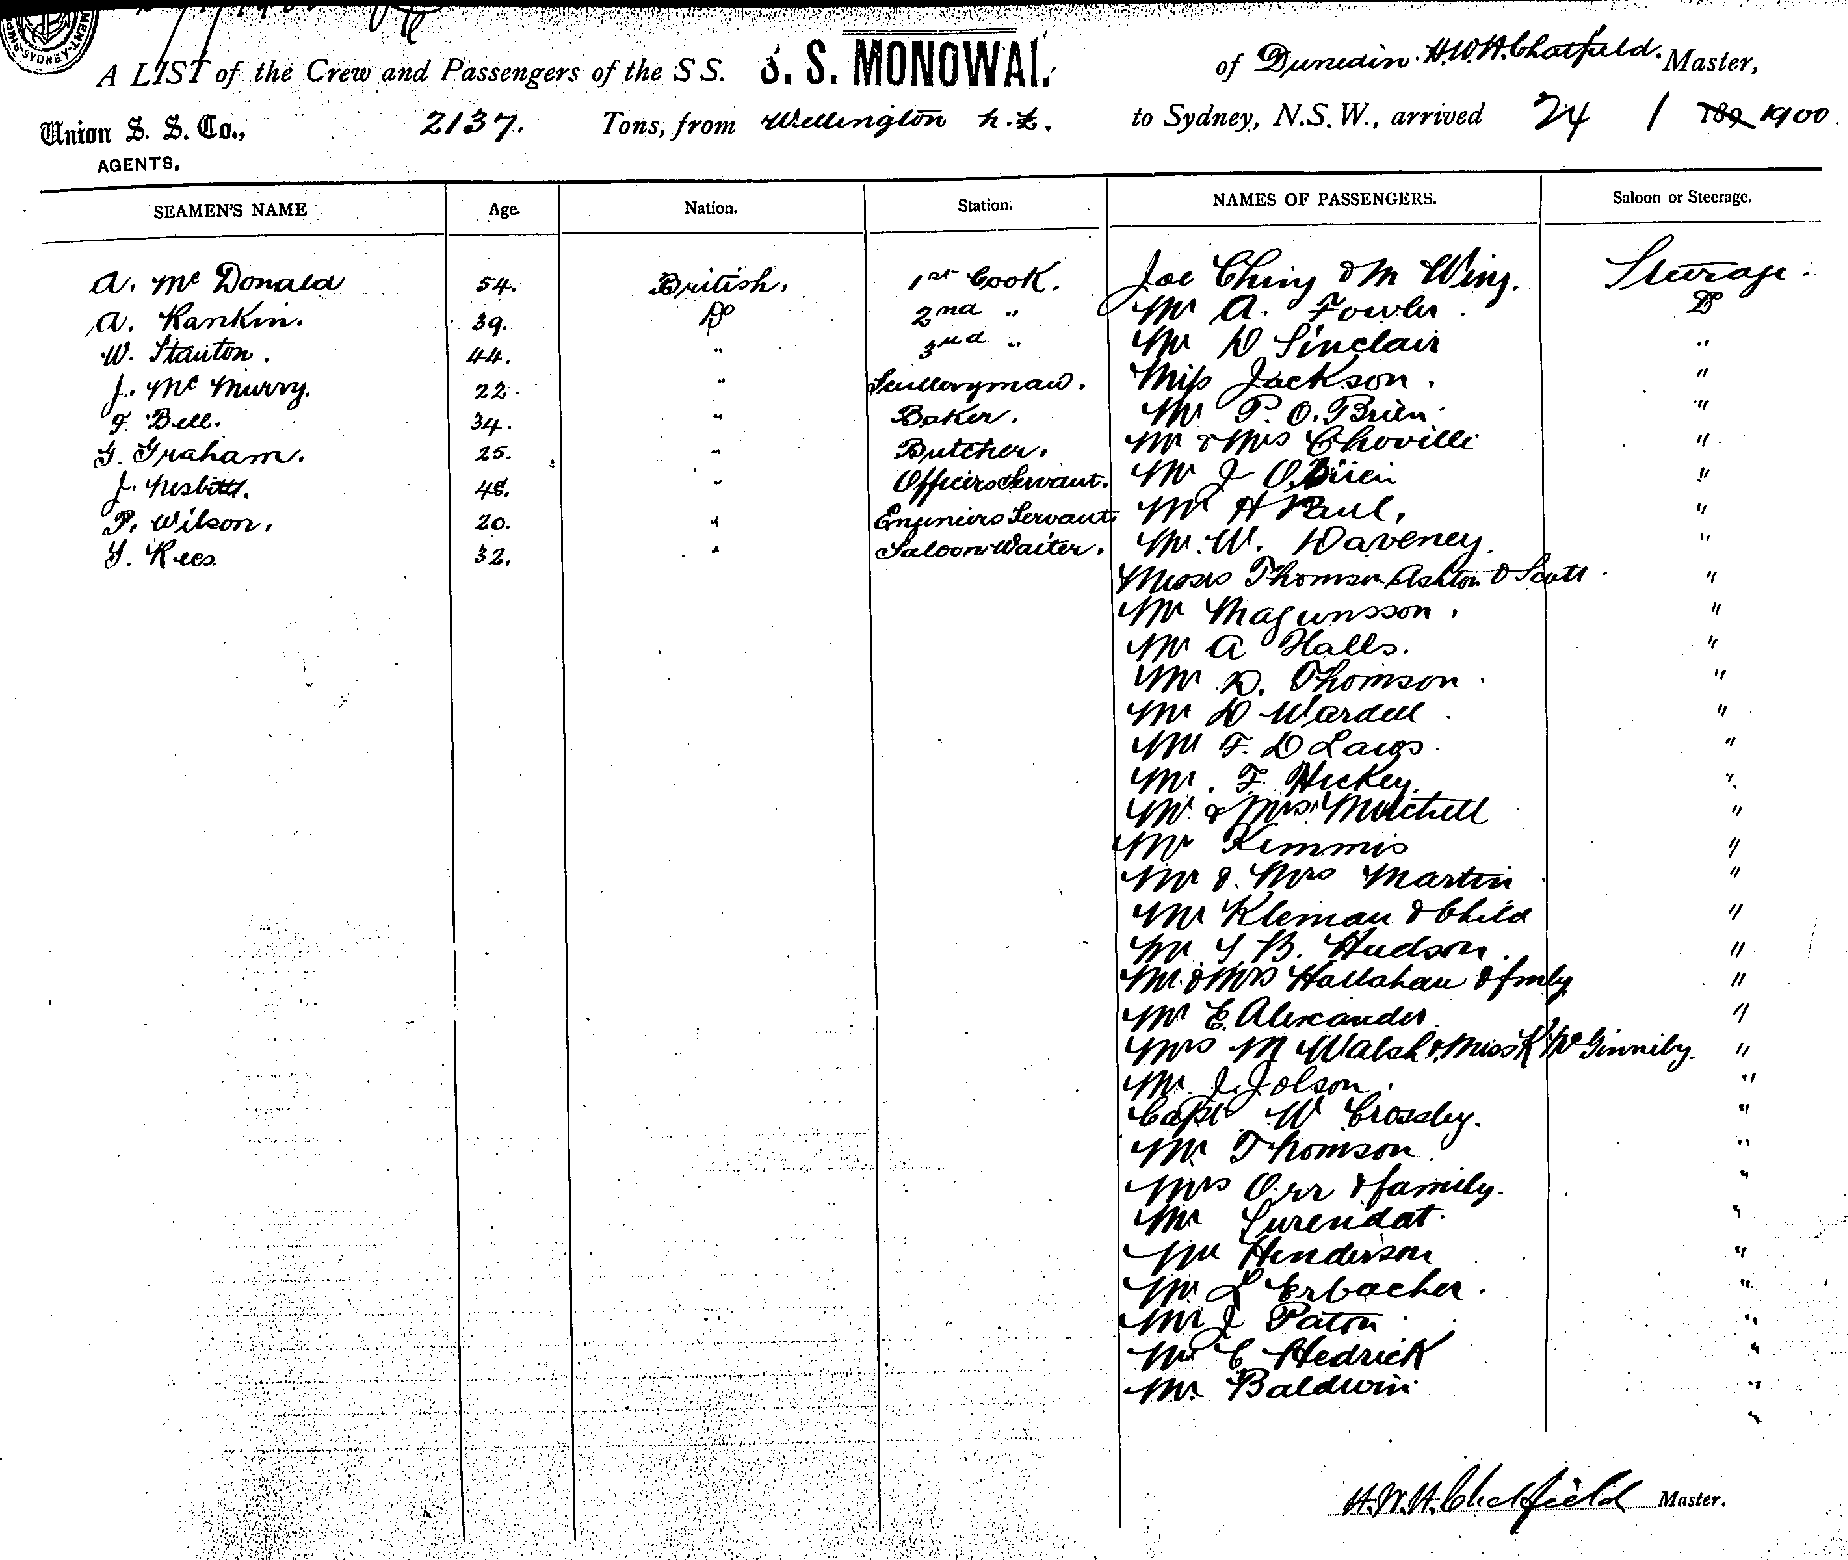 A LIST of the Crew and Passengers of the S S. S. S. MONOWAI. of Dunedin. H.W.H. Chatfield. Master,
Union S. S. Co., 2137. Tons, from Wellington N.Z. to Sydney, N.S.W., arrived 24 / 1 189 1900.
AGENTS.
SEAMEN'S NAME Age. Nation. Station. NAMES OF PASSENGERS. Saloon or Steerage.
A. Mc Donald 54. British. 1st Cook. Joe Ching & M Wing. Steerage.
A. Rankin. 39. Do 2nd " Mr A. Fowler. Do
W. Stanton. 44. " 3rd " Mr D Sinclair "
J. Mc Murry. 22. " Sculleryman. Miss Jackson. "
F. Bell. 34. " Baker. Mr P. O. Brien. "
G. Graham. 25. " Butcher. Mr & Mrs Choville "
J. Nisbett. 48. " Officers Servant. Mr J O.Brien "
P. Wilson. 20. " Engineers Servant. Mr H Paul. "
G. Rees. 32. " Saloon Waiter. Mr. W. Daveney. "
Misses Thomson Ashton & Scott. "
Mr Magunsson. "
Mr A Halls. "
Mr D. Thomson. "
Mr D Wardell. "
Mr F. D Laws. "
Mr. F. Hickey. "
Mr. & Mrs Mitchell "
Mr Kimmis "
Mr & Mrs Martin "
Mr Kleman & Child "
Mr. S B. Hudson. "
Mr. & Mrs Hallahan & fmly "
Mr E. Alexander. "
Mrs M Walsh & Miss K Mc Ginnily. "
Mr. J. Jolson. "
Capt W Crossby. "
Mr Thomson. "
Mrs Orr & family. "
Mr Surendat. "
Mr Henderson "
Mr L Erbacher. "
Mr J Paton "
Mr C Hedrick "
Mr. Baldwin "
"
H.W.H. Chatfield Master.